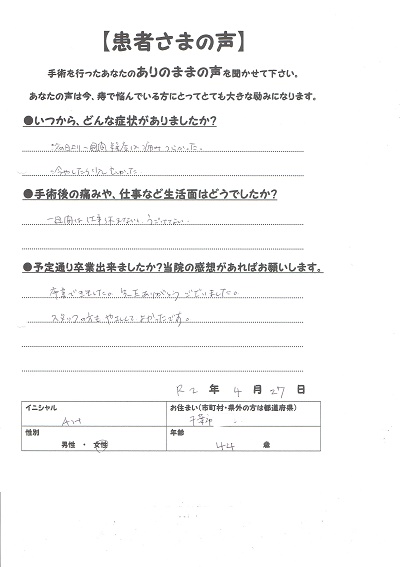 【患者さまの声】
手術を行ったあなたのありのままの声を聞かせて下さい。
あなたの声は今、痔で悩んでいる方にとってとても大きな励みになります。
●いつから、どんな症状がありましたか?
●手術後の痛みや、仕事など生活面はどうでしたか?
一週間は仕事
●予定通り卒業出来ましたか?当院の感想があればお願いします。
卒業できました。先生ありがとうございました。
スタッフの方も やさしくて よかったです。
R2 年 4 月 27 日
イニシャル
お住まい(市町村・県外の方は都道府県)
千葉市
性別
年齢
男性 ・ 女性
44 歳